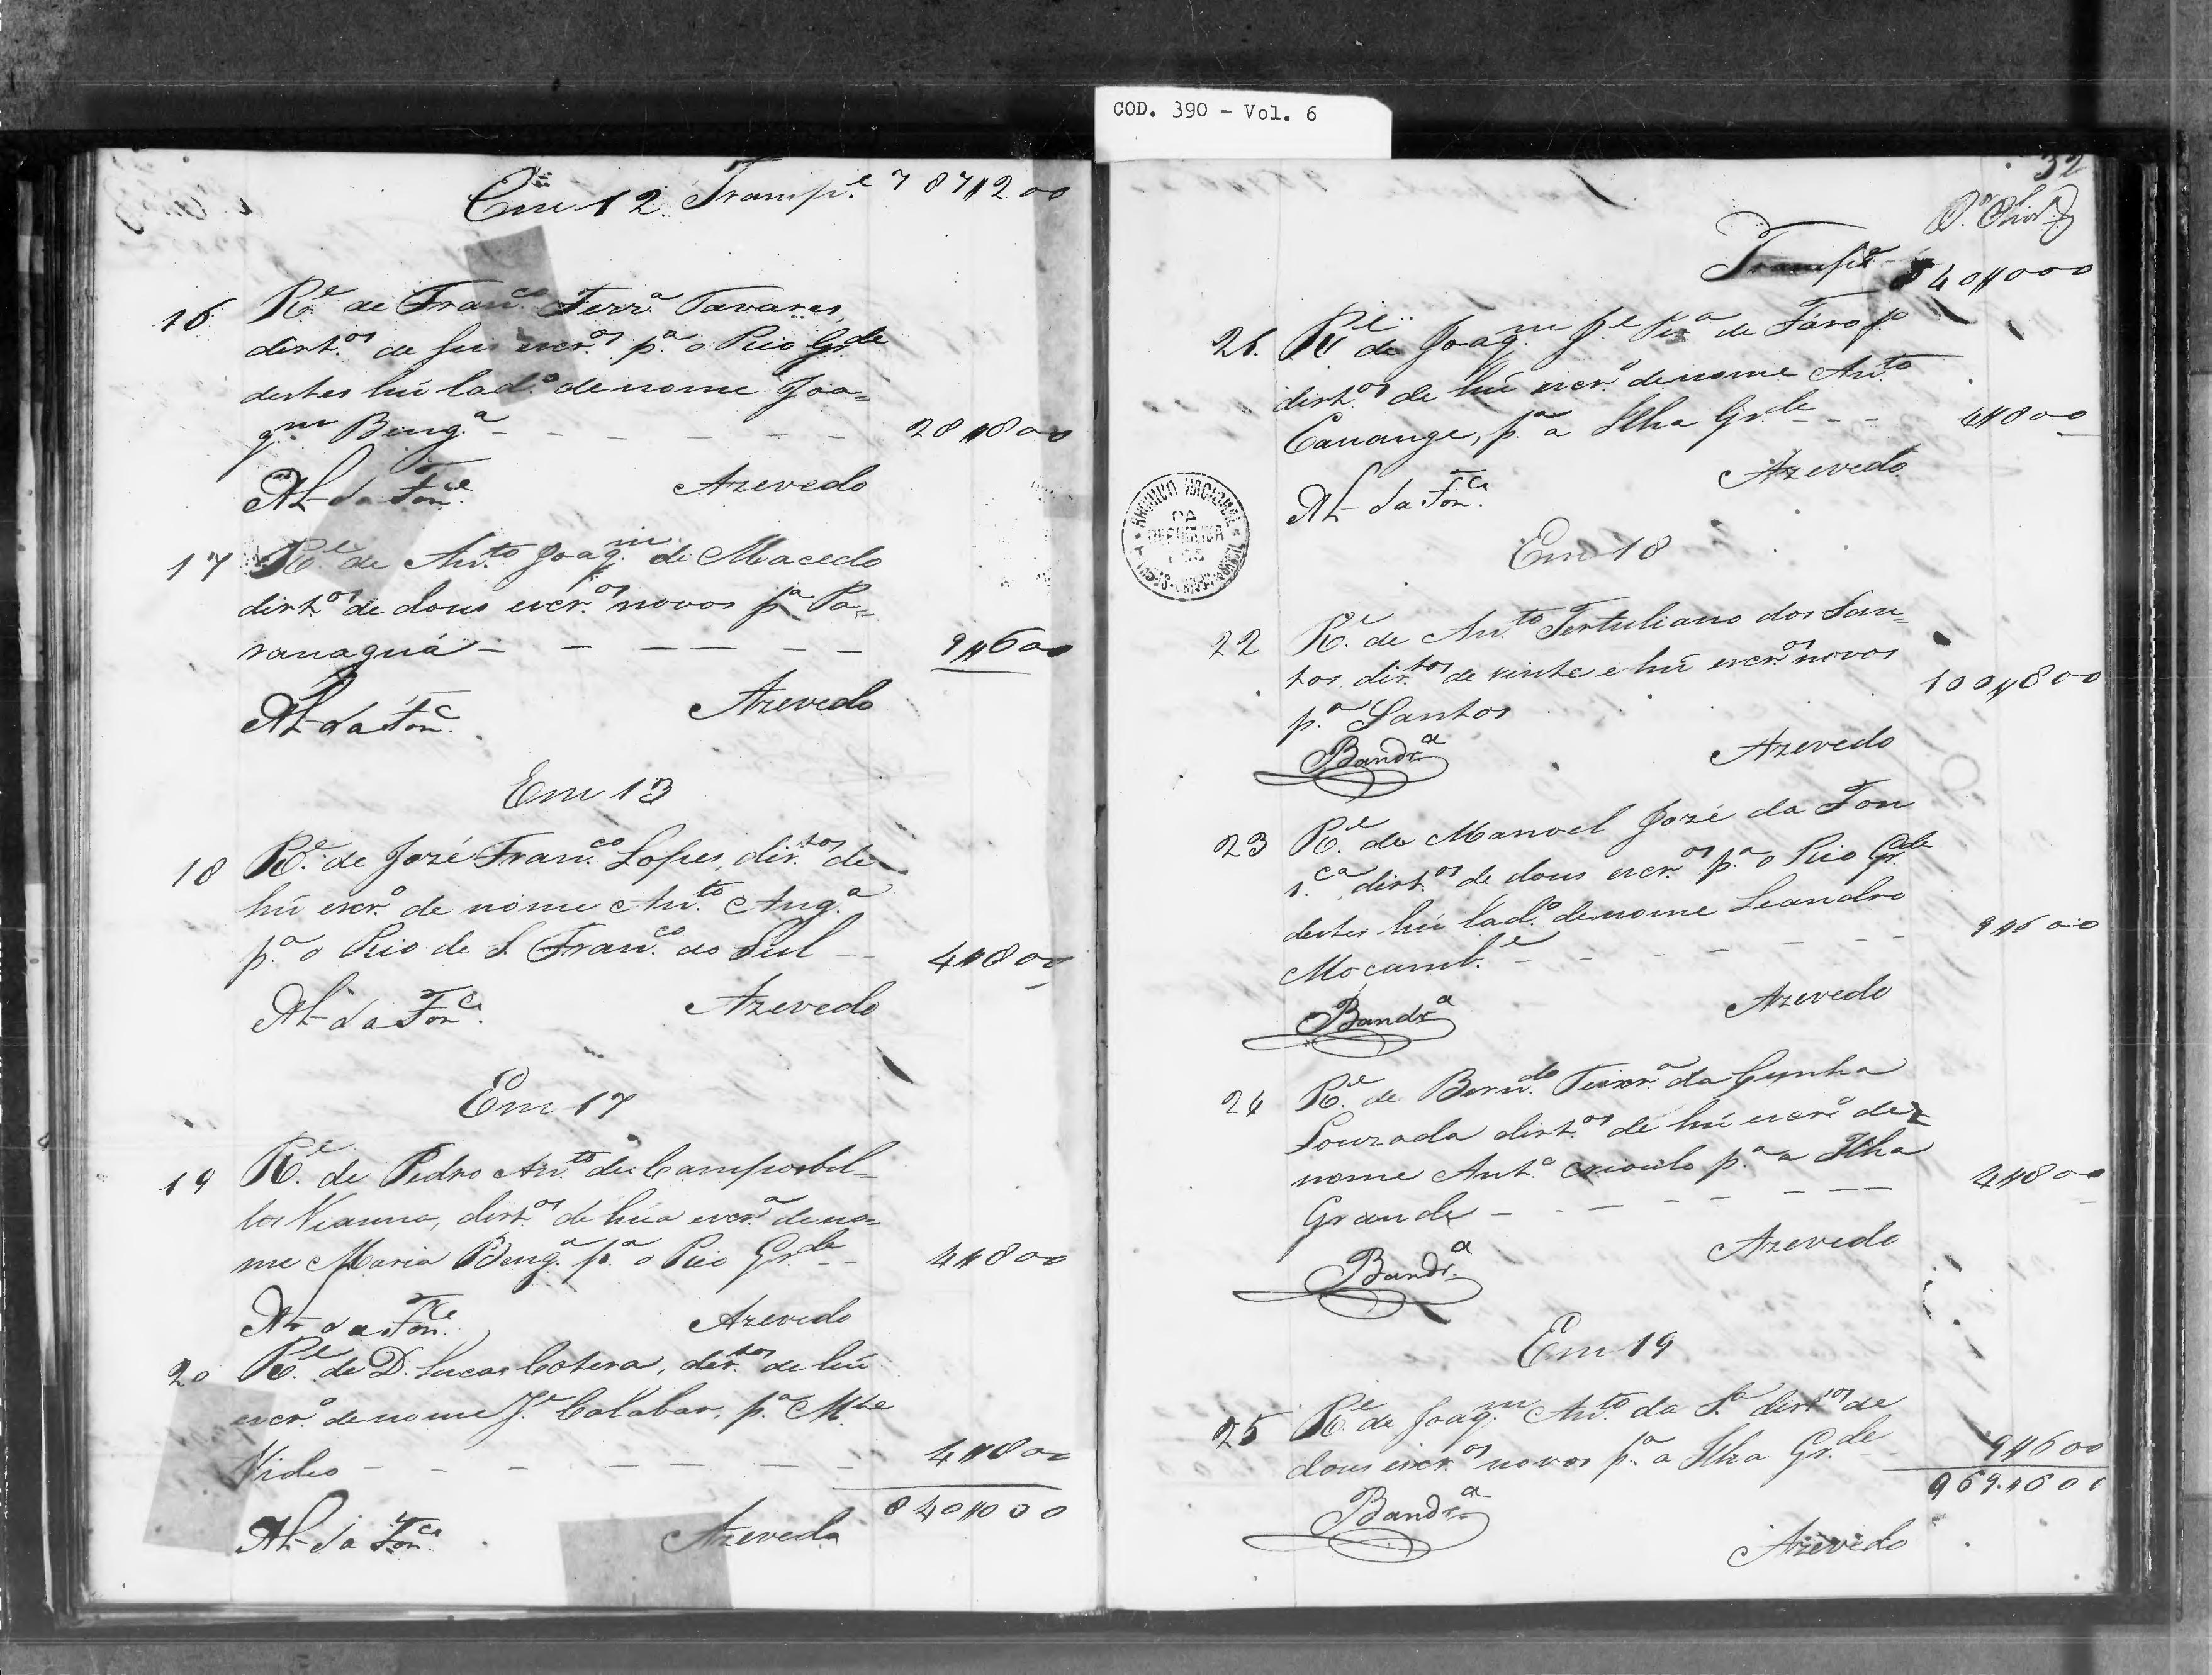 COD. 390 - Vol. 6
Em 12 Transp.e 787$200
16 R.e de Fran.co Ferr.a Tavares,
dirt.os de seis escr.os p.a o Rio Gr.de
destes hũ lad.o de nome Joa=
q.m Beng.a - - - - - - - 28$800
Al- da Fon.ce Azevedo
17 R.e de An.to Joaq.m de Macedo
dirt.os de dous escr.os novos p.a Pa=
ranaguá - - - - - - - 9$600
Al- da Fon.c Azevedo
Em 13
18 R.e de José Fran.co Lopes, dir.tos de
hũ escr.o de nome An.to Ang.a
p.a o Rio de S. Fran.co do Sul - - 4$800
Al- da Fon.ca Azevedo
Em 17
19 R.e de Pedro An.to de Campos bel=
los Vianna, dirt.os de hũa escr.a de no=
me Maria Beng.a p.a o Rio Gr.de - - 4$800
Al- da Fon.ce Azevedo
20 R.e de D. Lucas Cotera, dir.tos de hũ
escr.o de nome J.e Calabar, p.a M.te
Video - - - - - - - 4$800
840$000
Al- da Fon.ca Azevedo
32
Transp.e 840$000
21. R.e de Joaq.m J.e Per.a de Faro f.o
dirt.os de hũ escr.o de nome An.to
Cauange, p.a a Ilha Gr.de - - - 4$800
Al- da Fon.ca Azevedo
ARCHIVO NACIONAL
DA
REPUBLICA
Em 18
22 R.e de An.to Tertuliano dos San=
tos dir.tos de vinte e hũ escr.os novos
p.a Santos 100$800
Bandr.a Azevedo
23 R.e de Manoel José da Fon
s.ca dirt.os de dous escr.os p.a o Rio Gr.de
destes hũ lad.o de nome Leandro
Moçamb.e - - - - - - - 9$600
Bandr.a Azevedo
24 R.e de Bern.do Teixr.a da Cunha
Louzada dirt.os de hũ escr.o de=
nome Ant.o crioulo p.a a Ilha
Grande - - - - - - - 4$800
Bandr.a Azevedo
Em 19
25 R.e de Joaq.m An.to da S.a dirt.os de
dous escr.os novos p.a a Ilha Gr.de 9$600
969$600
Bandr.a Azevedo